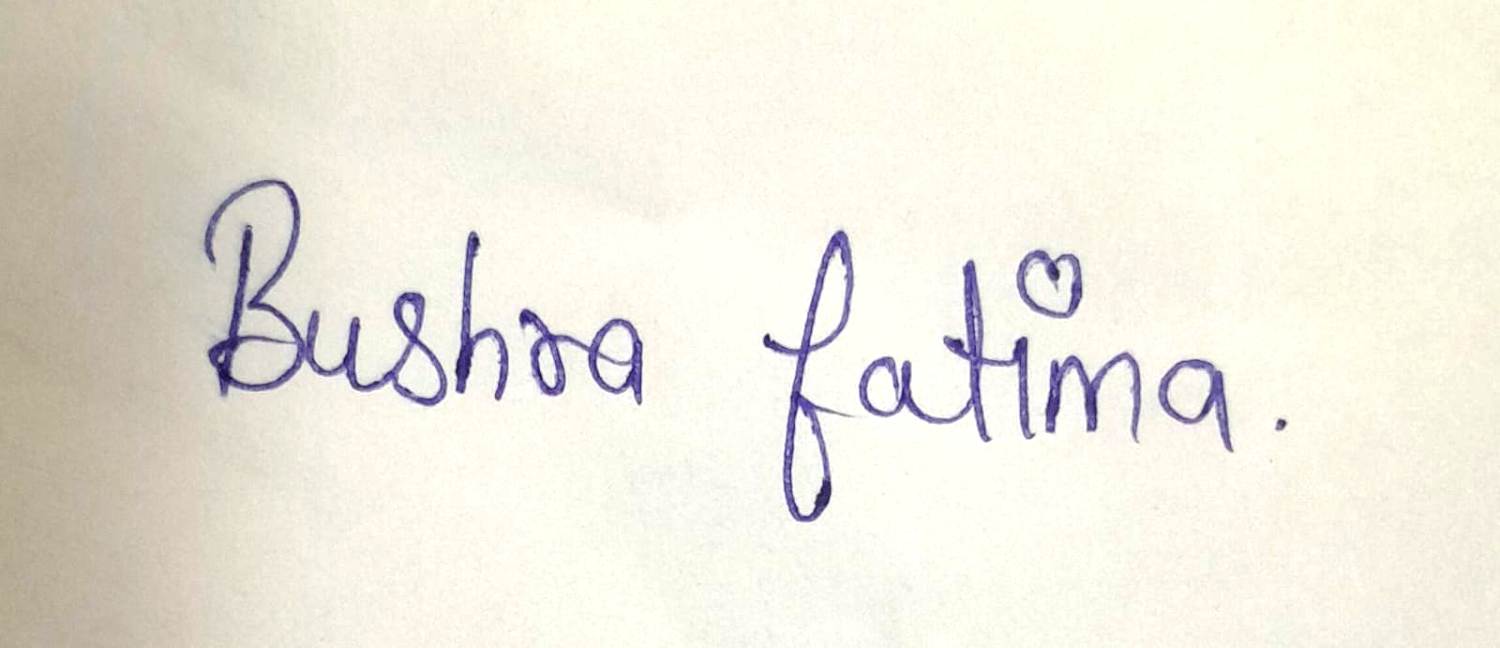 Bushra fatima.